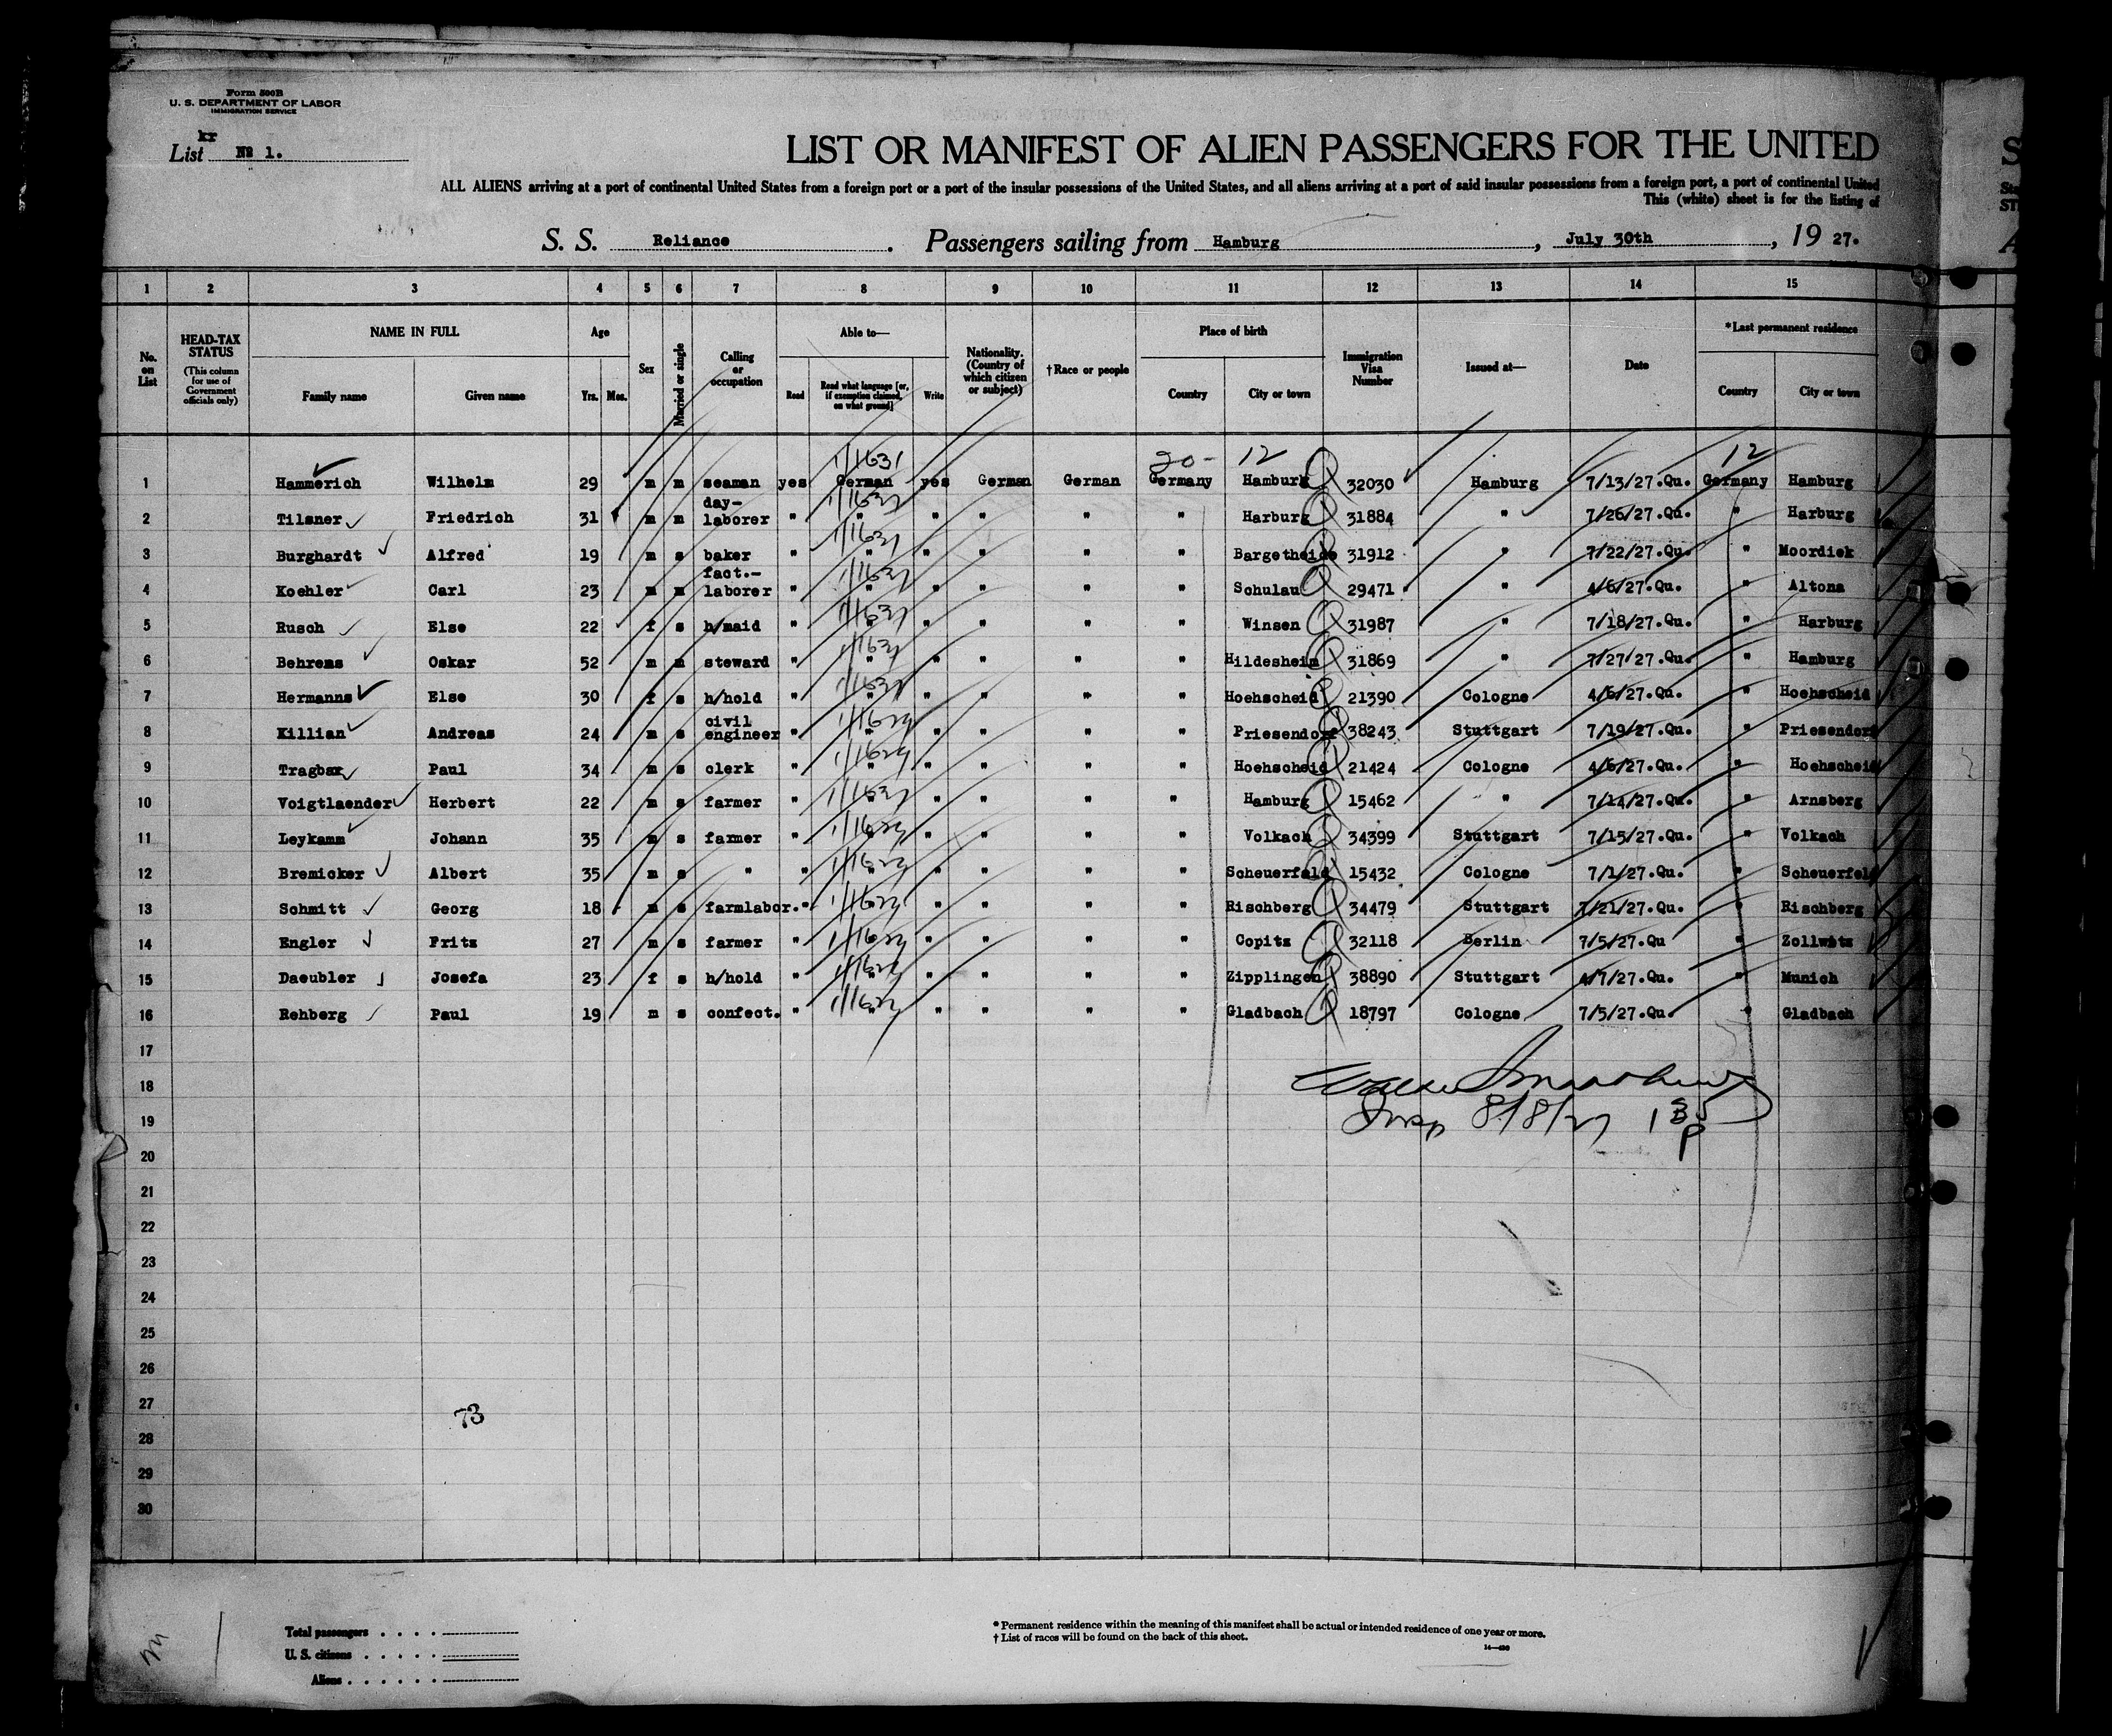 Form 500B
U. S. DEPARTMENT OF LABOR
IMMIGRATION SERVICE
kr
List No 1.
LIST OR MANIFEST OF ALIEN PASSENGERS FOR THE UNITED
ALL ALIENS arriving at a port of continental United States from a foreign port or a port of the insular possessions of the United States, and all aliens arriving at a port of said insular possessions from a foreign port, a port of continental United
This (white) sheet is for the listing of
S. S. Reliance . Passengers sailing from Hamburg , July 30th , 19 27.
1 2 3 4 5 6 7 8 9 10 11 12 13 14 15
No. on List
HEAD-TAX STATUS (This column for use of Government officials only)
NAME IN FULL Family name Given name
Age Yrs. Mos.
Sex
Married or single
Calling or occupation
Able to— Read Read what language [or, if exemption claimed, on what ground] Write
Nationality. (Country of which citizen or subject)
†Race or people
Place of birth Country City or town
Immigration Visa Number
Issued at—
Date
*Last permanent residence Country City or town
20- 12 12
1 Hammerich Wilhelm 29 m m seaman yes German yes German German Germany Hamburg 32030 Hamburg 7/13/27.Qu. Germany Hamburg
2 Tilsner Friedrich 31 m m day-laborer " " " " " " Harburg 31884 " 7/26/27.Qu. " Harburg
3 Burghardt Alfred 19 m s baker " " " " " " Bargetheide 31912 " 7/22/27.Qu. " Moordiek
4 Koehler Carl 23 m m fact.-laborer " " " " " " Schulau 29471 " 4/6/27.Qu. " Altona
5 Rusch Else 22 f s h/maid " " " " " " Winsen 31987 " 7/18/27.Qu. " Harburg
6 Behrens Oskar 52 m m steward " " " " " " Hildesheim 31869 " 7/27/27.Qu. " Hamburg
7 Hermanns Else 30 f s h/hold " " " " " " Hoehscheid 21390 Cologne 4/6/27.Qu. " Hoehscheid
8 Killian Andreas 24 m s civil engineer " " " " " " Priesendorf 38243 Stuttgart 7/19/27.Qu. " Priesendorf
9 Tragbar Paul 34 m s clerk " " " " " " Hoehscheid 21424 Cologne 4/6/27.Qu. " Hoehscheid
10 Voigtlaender Herbert 22 m s farmer " " " " " " Hamburg 15462 " 7/14/27.Qu. " Arnsberg
11 Leykamm Johann 35 m s farmer " " " " " " Volkach 34399 Stuttgart 7/15/27.Qu. " Volkach
12 Bremicker Albert 35 m s " " " " " " " Scheuerfeld 15432 Cologne 7/1/27.Qu. " Scheuerfeld
13 Schmitt Georg 18 m s farmlabor. " " " " " " Rischberg 34479 Stuttgart 7/21/27.Qu. " Rischberg
14 Engler Fritz 27 m s farmer " " " " " " Copitz 32118 Berlin 7/5/27.Qu " Zollwitz
15 Daeubler Josefa 23 f s h/hold " " " " " " Zipplingen 38890 Stuttgart 4/7/27.Qu. " Munich
16 Rehberg Paul 19 m s confect. " " " " " " Gladbach 18797 Cologne 7/5/27.Qu. " Gladbach
17
18
19
Insp 8/8/27
20
21
22
23
24
25
26
27
73
28
29
30
Total passengers . . . .
U. S. citizens . . . . .
Aliens . . . . . .
* Permanent residence within the meaning of this manifest shall be actual or intended residence of one year or more.
† List of races will be found on the back of this sheet.